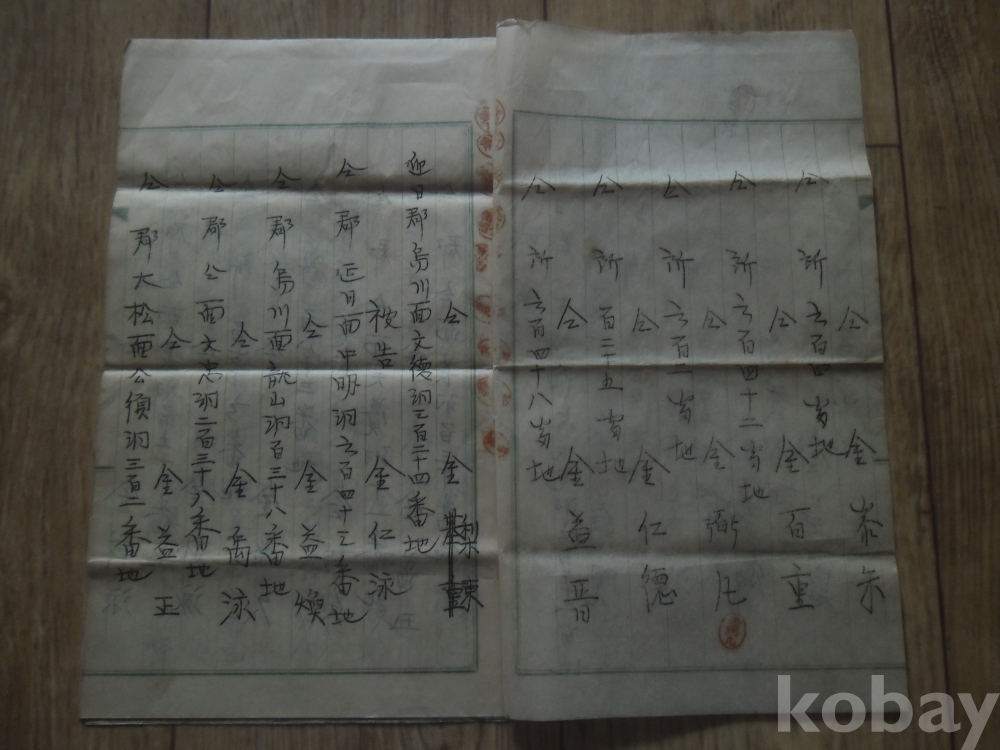 仝 所 六百四番地
仝 金
仝 所 六百四十二番地
仝 金百重
仝 所 六百二番地
仝 金
仝 所 百二十五番地
仝 金仁德
仝 所 六百四十八番地
仝 金益晋
迎日郡烏川面文德洞三百二十四番地
仝 金
被告 金仁泳
仝 郡延日面中明洞六百四十三番地
仝 金益煥
仝 郡烏川面龍山洞百三十八番地
仝 金禹泳
仝 郡仝面文忠洞二百三十八番地
仝 金益正
仝 郡大松面公須洞三百二番地
kobay